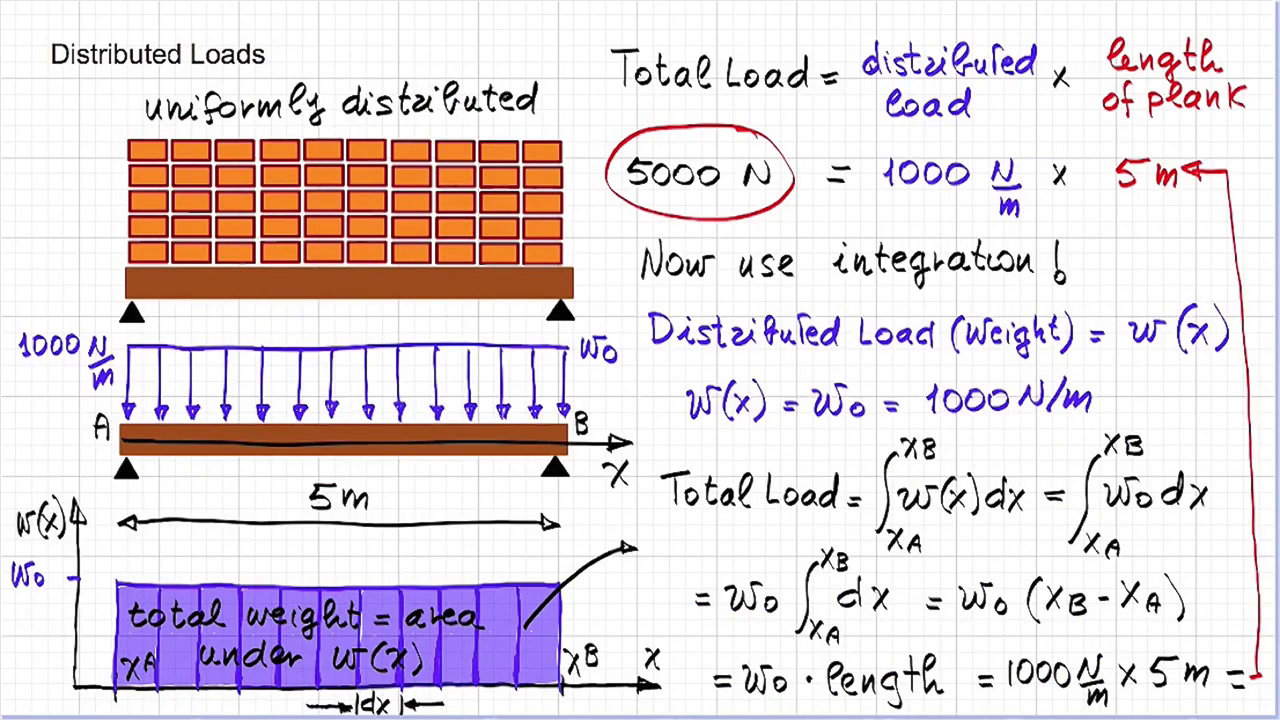 Distributed Loads
uniformly distributed
1000 N/m
w0
A
B
x
5m
w(x)
w0
total weight = area
under w(x)
xA
xB
x
dx
Total Load = distributed load × length of plank
5000 N = 1000 N/m × 5m
Now use integration!
Distributed Load (Weight) = w(x)
w(x) = w0 = 1000 N/m
Total Load = ∫xA^xB w(x)dx = ∫xA^xB w0 dx
= w0 ∫xA^xB dx = w0 (xB - xA)
= w0 · length = 1000 N/m × 5m =